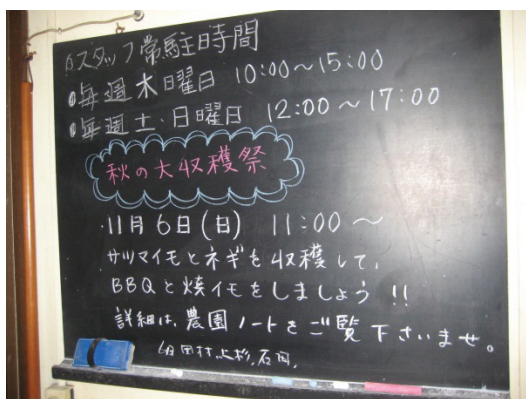 スタッフ常駐時間
毎週木曜日 10:00～15:00
毎週土・日曜日 12:00～17:00
秋の大収穫祭
11月6日(日) 11:00～
サツマイモとネギを収穫して、
BBQと焼イモをしましょう!!
詳細は、農園ノートをご覧下さいませ。
田村、上杉、石田、